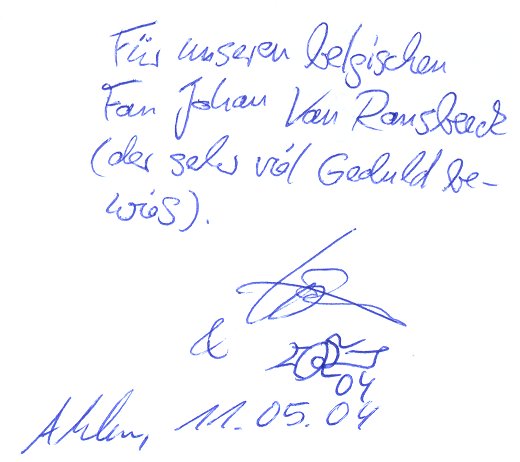 Für unseren belgischen
Fan Johan Van Ransbeeck
(der sehr viel Geduld be-
wies).
&
04
Ahlen, 11.05.04